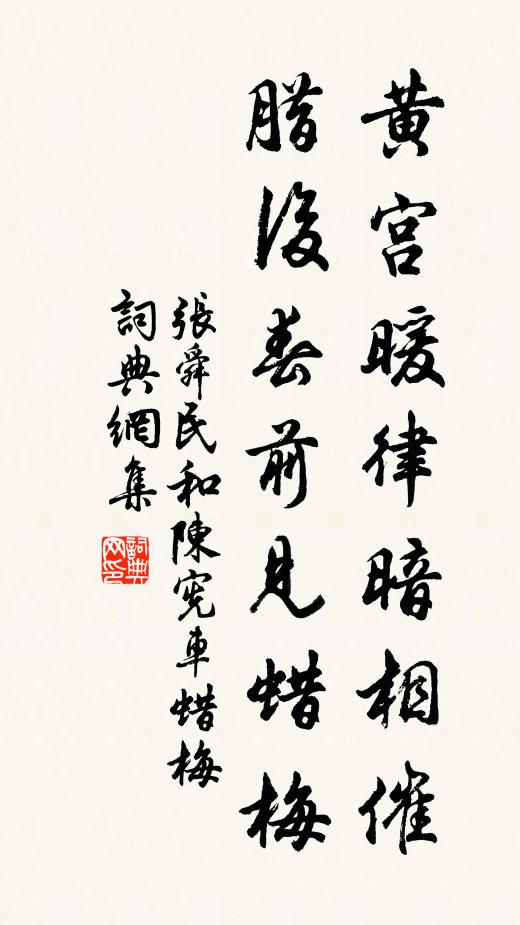 黄宫暖律暗相催
腊後春前見蜡梅
張舜民和陳宪車蜡梅
詞典網集
詞典网印